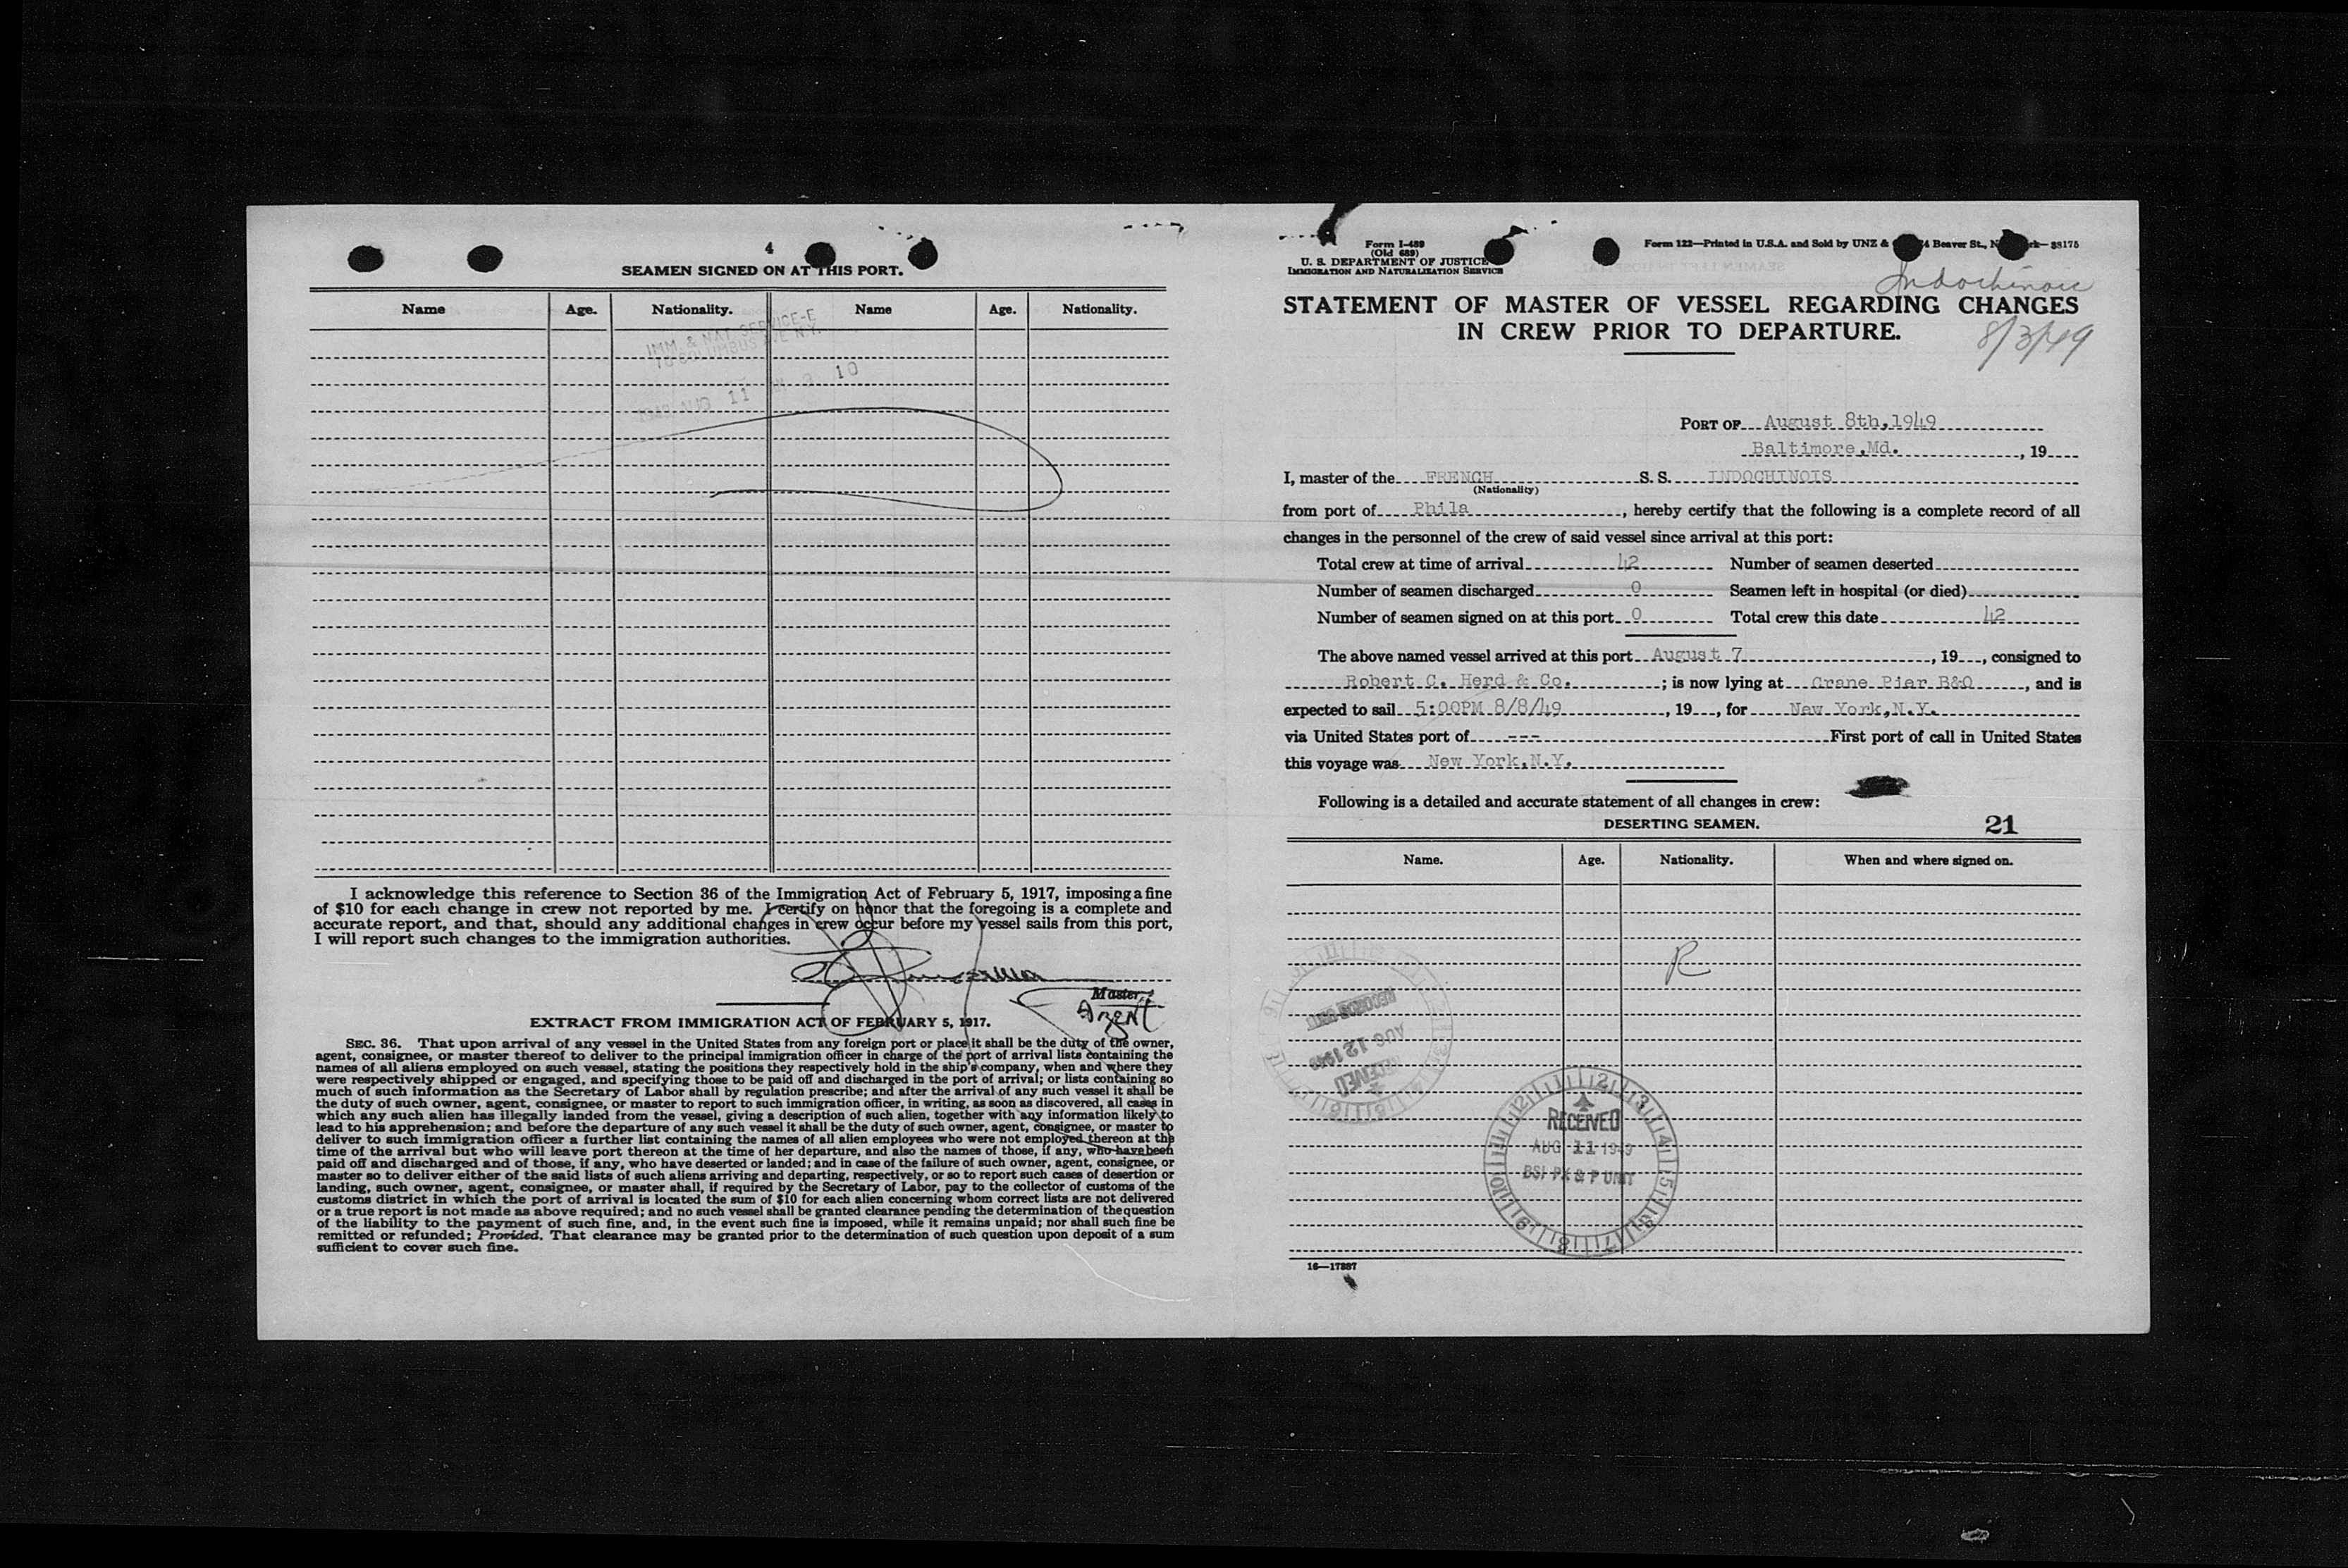 4
SEAMEN SIGNED ON AT THIS PORT.
Name Age. Nationality. Name Age. Nationality.
IMM & NAT SERVICE-E
70 COLUMBUS AVE N.Y.
1949 AUG 11 10
I acknowledge this reference to Section 36 of the Immigration Act of February 5, 1917, imposing a fine
of $10 for each change in crew not reported by me. I certify on honor that the foregoing is a complete and
accurate report, and that, should any additional changes in crew occur before my vessel sails from this port,
I will report such changes to the immigration authorities.
Master.
Agent
EXTRACT FROM IMMIGRATION ACT OF FEBRUARY 5, 1917.
SEC. 36. That upon arrival of any vessel in the United States from any foreign port or place it shall be the duty of the owner,
agent, consignee, or master thereof to deliver to the principal immigration officer in charge of the port of arrival lists containing the
names of all aliens employed on such vessel, stating the positions they respectively hold in the ship's company, when and where they
were respectively shipped or engaged, and specifying those to be paid off and discharged in the port of arrival; or lists containing so
much of such information as the Secretary of Labor shall by regulation prescribe; and after the arrival of any such vessel it shall be
the duty of such owner, agent, consignee, or master to report to such immigration officer, in writing, as soon as discovered, all cases in
which any such alien has illegally landed from the vessel, giving a description of such alien, together with any information likely to
lead to his apprehension; and before the departure of any such vessel it shall be the duty of such owner, agent, consignee, or master to
deliver to such immigration officer a further list containing the names of all alien employees who were not employed thereon at the
time of the arrival but who will leave port thereon at the time of her departure, and also the names of those, if any, who have been
paid off and discharged and of those, if any, who have deserted or landed; and in case of the failure of such owner, agent, consignee, or
master so to deliver either of the said lists of such aliens arriving and departing, respectively, or so to report such cases of desertion or
landing, such owner, agent, consignee, or master shall, if required by the Secretary of Labor, pay to the collector of customs of the
customs district in which the port of arrival is located the sum of $10 for each alien concerning whom correct lists are not delivered
or a true report is not made as above required; and no such vessel shall be granted clearance pending the determination of the question
of the liability to the payment of such fine, and, in the event such fine is imposed, while it remains unpaid; nor shall such fine be
remitted or refunded; Provided, That clearance may be granted prior to the determination of such question upon deposit of a sum
sufficient to cover such fine.
Form I-489
(Old 689)
U. S. DEPARTMENT OF JUSTICE
IMMIGRATION AND NATURALIZATION SERVICE
Form 122—Printed in U.S.A. and Sold by UNZ & Beaver St., 38175
Indochinois
STATEMENT OF MASTER OF VESSEL REGARDING CHANGES
IN CREW PRIOR TO DEPARTURE.
8/3/49
PORT OF August 8th,1949
Baltimore,Md. , 19
I, master of the FRENCH S. S. INDOCHINOIS
(Nationality)
from port of Phila , hereby certify that the following is a complete record of all
changes in the personnel of the crew of said vessel since arrival at this port:
Total crew at time of arrival 42 Number of seamen deserted
Number of seamen discharged 0 Seamen left in hospital (or died)
Number of seamen signed on at this port 0 Total crew this date 42
The above named vessel arrived at this port August 7 , 19 , consigned to
Robert C. Herd & Co. ; is now lying at Crane Pier B&O , and is
expected to sail 5:00PM 8/8/49 , 19 , for New York,N.Y.
via United States port of --- First port of call in United States
this voyage was New York,N.Y.
Following is a detailed and accurate statement of all changes in crew:
DESERTING SEAMEN. 21
Name. Age. Nationality. When and where signed on.
R
RECORDS UNIT
AUG 12 1949
RECEIVED
RECEIVED
AUG 11 1949
BSI PX & P UNIT
16—17887